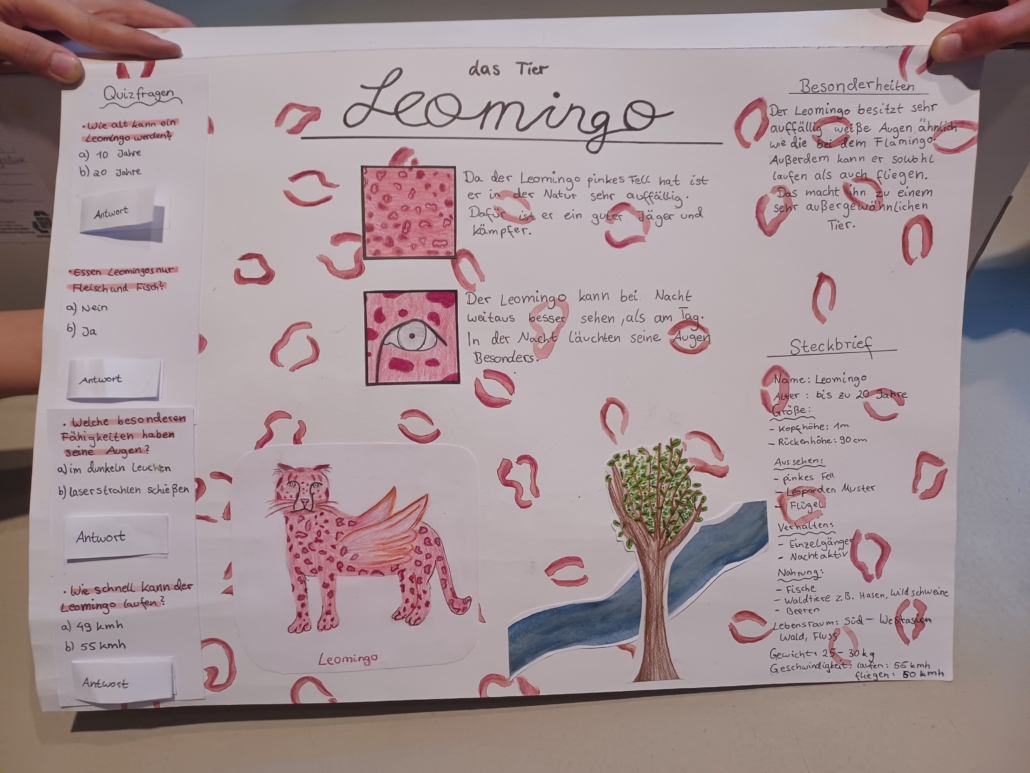 das Tier
Leomingo
Quizfragen
• Wie alt kann ein
Leomingo werden?
a) 10 Jahre
b) 20 Jahre
Antwort
• Essen Leomingos nur
Fleisch und Fisch?
a) Nein
b) Ja
Antwort
• Welche besonderen
Fähigkeiten haben
seine Augen?
a) im dunkeln leuchen
b) laserstrahlen schießen
Antwort
• Wie schnell kann der
Leomingo laufen?
a) 49 kmh
b) 55 kmh
Antwort
Da der Leomingo pinkes Fell hat ist
er in der Natur sehr auffällig.
Dafür ist er ein guter Jäger und
kämpfer.
Der Leomingo kann bei Nacht
weitaus besser sehen, als am Tag.
In der Nacht läuchten seine Augen
Besonders.
Leomingo
Besonderheiten
Der Leomingo besitzt sehr
auffällig weiße Augen ähnlich
wie die bei dem Flamingo.
Außerdem kann er sowohl
laufen als auch fliegen.
Das macht ihn zu einem
sehr außergewöhnlichen
Tier.
Steckbrief
Name: Leomingo
Alter: bis zu 20 Jahre
Größe:
- Kopfhöhe: 1m
- Rückenhöhe: 90cm
Aussehen:
- pinkes Fell
- Leoparden Muster
- Flügel
Verhalten:
- Einzelgänger
- Nachtaktiv
Nahrung:
- Fische
- Waldtiere z.B. Hasen, Wildschweine
- Beeren
Lebensraum: Süd-Westasien
Wald, Fluss
Gewicht: 25-30kg
Geschwindigkeit: laufen: 55 kmh
fliegen: 50 kmh